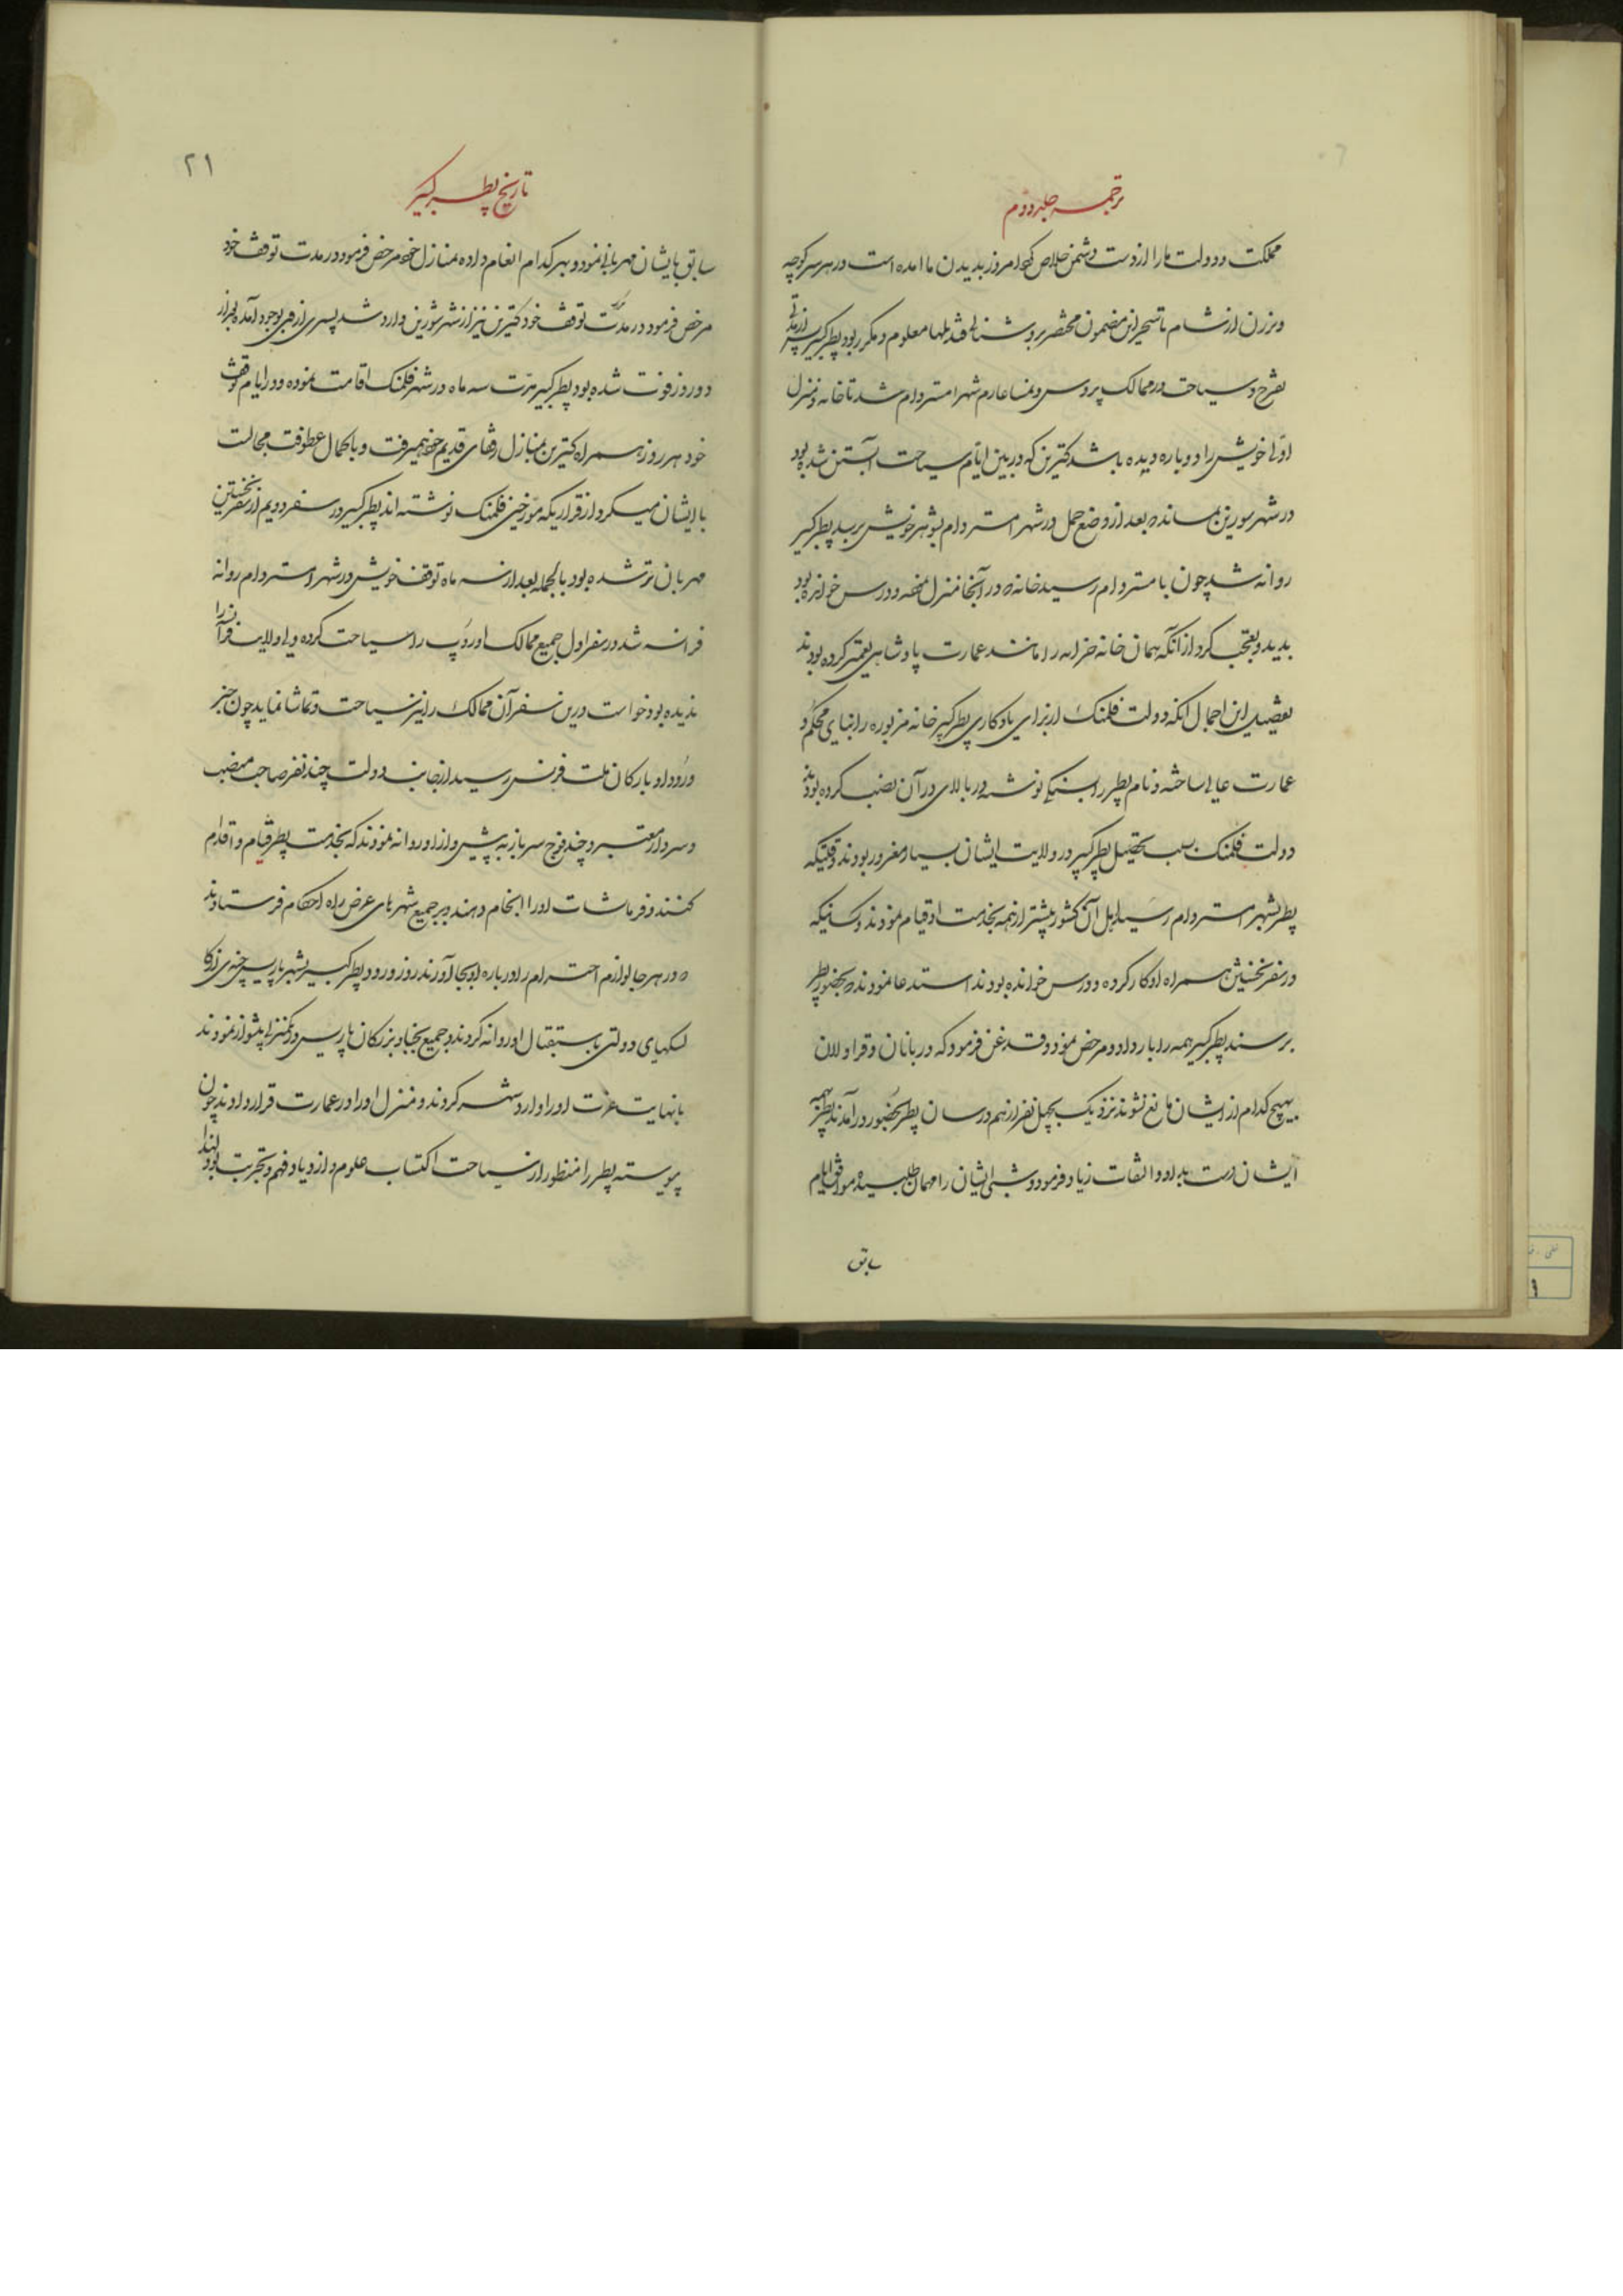 ترجمه جلد دوم
مملکت و دولت ما را از دست دشمن خلاص کرد امروز بدیدن ما امده است در هر سر کوچه
و برزن از شام تا سحر این مضمون مختصر بروشنائی قندیلها معلوم و مکرر بود پطر کبیر پس از مدتی
تفرج و سیاحت در ممالک پروس و نمسا عازم شهر امستردام شد تا خانه و منزل
اولی خویش را دوباره دیده باشد کترین که در بین ایام سیاحت آبستن شده بود
در شهر سورین بمانده بعد از وضع حمل در شهر امستردام بشوهر خویش برسد پطر کبیر
روانه شد چون بامستردام رسید خانه که در آنجا منزل نموده و درس خوانده بود
بدید و تعجب کرد از آنکه همان خانه خرابه را مانند عمارت پادشاهی تعمیر کرده بودند
تفصیل این اجمال آنکه دولت فلمنک از برای یادکاری پطر کبیر خانه مزبوره را بنیای محکم و
عمارت عالی ساخته و نام پطر را بسنکی نوشته در بالای در آن نصب کرده بودند
دولت فلمنک بسبب تحصیل پطر کبیر در ولایت ایشان بسیار مغرور بودند وقتیکه
پطر بشهر امستردام رسید اهل آن کشور بیشتر از همه بخدمت او قیام نمودند و کسانیکه
در سفر نخستین همراه او کار کرده و درس خوانده بودند استدعا نمودند که بحضور پطر
برسند پطر کبیر همه را بار داد و مرخص نمود و قدغن فرمود که دربانان و قراولان
بهیچ کدام از ایشان مانع نشوند نزدیک بچهل نفر از هم درسان پطر بحضور درآمدند پطر بهمه
ایشان دست بداد و التفات زیاد فرمود و شبی ایشان را مهمان طلبیده موافق ایام
سابق
۲۱
تاریخ پطر کبیر
سابق بایشان مهربانی نمود و بهر کدام انعام داده بمنازل خود مرخص فرمود در مدت توقف خود
مرخص فرمود در مدت توقف خود کترین نیز از شهر شورین وارد شد پسری از وی بوجود آمده بعد از
دو روز فوت شده بود پطر کبیر مدت سه ماه در شهر فلمنک اقامت نموده و در ایام توقف
خود هر روز همراه کترین بمنازل رفقای قدیم خود میرفت و با کمال عطوفت مجالست
با ایشان میکرد از قراریکه مورخین فلمنک نوشته اند پطر کبیر در سفر دویم از سفر نخستین
مهربان تر شده بود بالجمله بعد از سه ماه توقف خویش در شهر امستردام روانه
فرانسه شد در سفر اول جمیع ممالک اوروپ را سیاحت کرده ولی ولایت فرانسه را
ندیده بود خواست درین سفر آن ممالک را نیز سیاحت و تماشا نماید چون خبر
ورود او بارکان ملت فرنس رسید از جانب دولت چند نفر صاحب منصب
و سردار معتبر و چند فوج سرباز به پیشواز او روانه نمودند که بخدمت پطر قیام و اقدام
کنند و فرمایشات او را انجام دهند و بر جمیع شهرهای عرض راه احکام فرستادند
که در هر جا لوازم احترام را در باره او بجا آورند روز ورود پطر کبیر بشهر پاریس
کالسکهای دولتی باستقبال او روانه کردند و جمیع نجبا و بزرکان پاریس پیشواز نمودند
بانهایت عزت او را وارد شهر کردند و منزل او را در عمارت قرار دادند چون
پیوسته پطر را منظور از سیاحت اکتساب علوم و ازدیاد فهم و تجربت بود لهذا